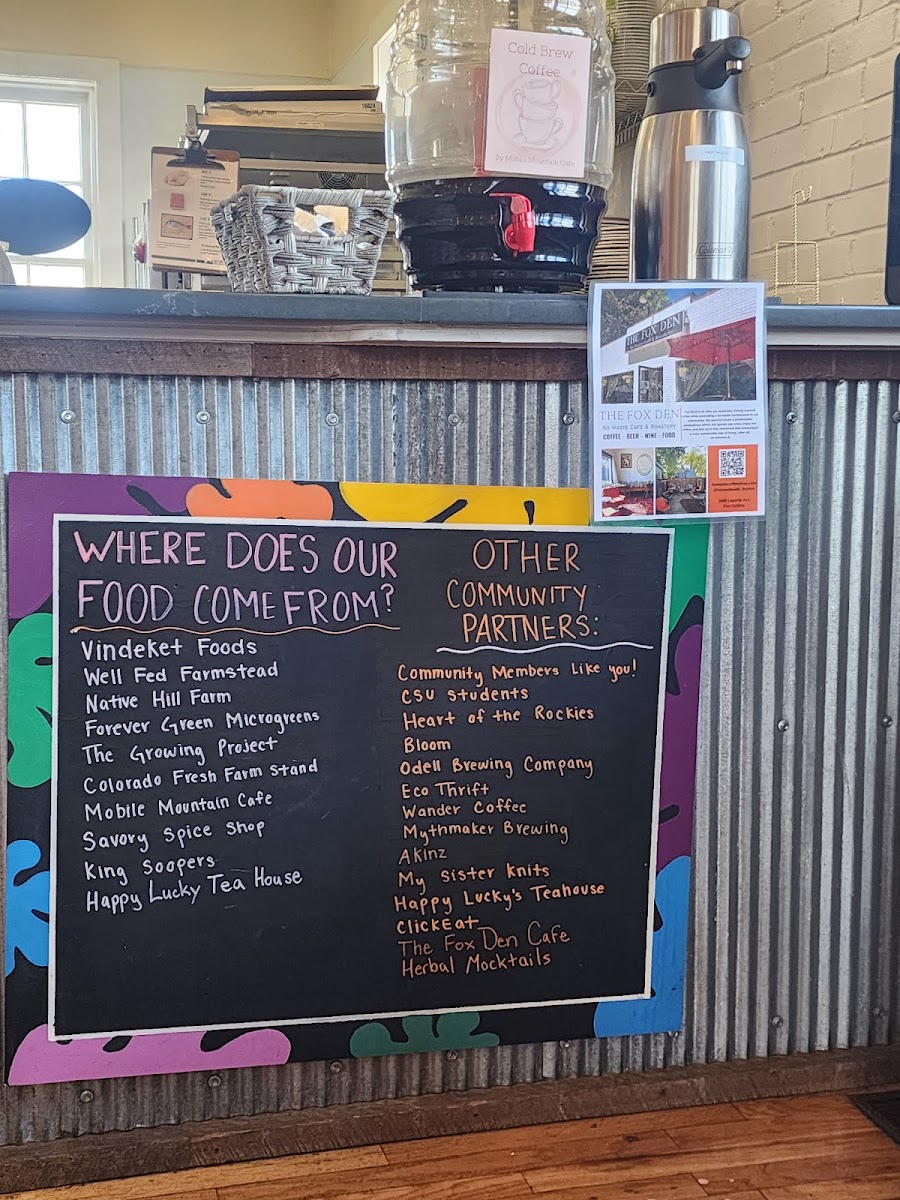 Cold Brew
Coffee
By Mobile Mountain Cafe
Coleman
THE FOX DEN
THE FOX DEN
No Waste Cafe & Roastery
COFFEE - BEER - WINE - FOOD
WHERE DOES OUR
FOOD COME FROM?
Vindeket Foods
Well Fed Farmstead
Native Hill Farm
Forever Green Microgreens
The Growing Project
Colorado Fresh Farm Stand
Mobile Mountain Cafe
Savory Spice Shop
King Soopers
Happy Lucky Tea House
OTHER
COMMUNITY
PARTNERS:
Community Members Like you!
CSU Students
Heart of the Rockies
Bloom
Odell Brewing Company
Eco Thrift
Wander Coffee
Mythmaker Brewing
Akinz
My Sister Knits
Happy Lucky's Teahouse
ClickEat
The Fox Den Cafe
Herbal Mocktails